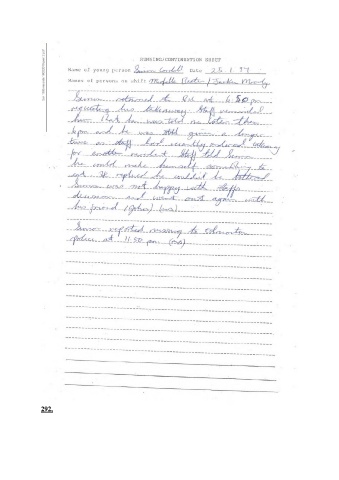 NURSING/CONTINUATION SHEET
Name of young person Simon Cordell Date 25.1.97
Names of persons on shift Michelle / Jackie
Simon returned to at 6.50pm
requesting his takeaway. Staff reminded
him that he was told no later than
6pm and he was still given a longer
time as staff had recently ordered takeaway
for another resident. Staff told Simon
he could make himself something to
eat. He replied he couldn't be bothered
Simon was not happy with staffs
decision and went out again with
his friend
Simon reported missing to Edmonton
police at 11.50 pm
292.